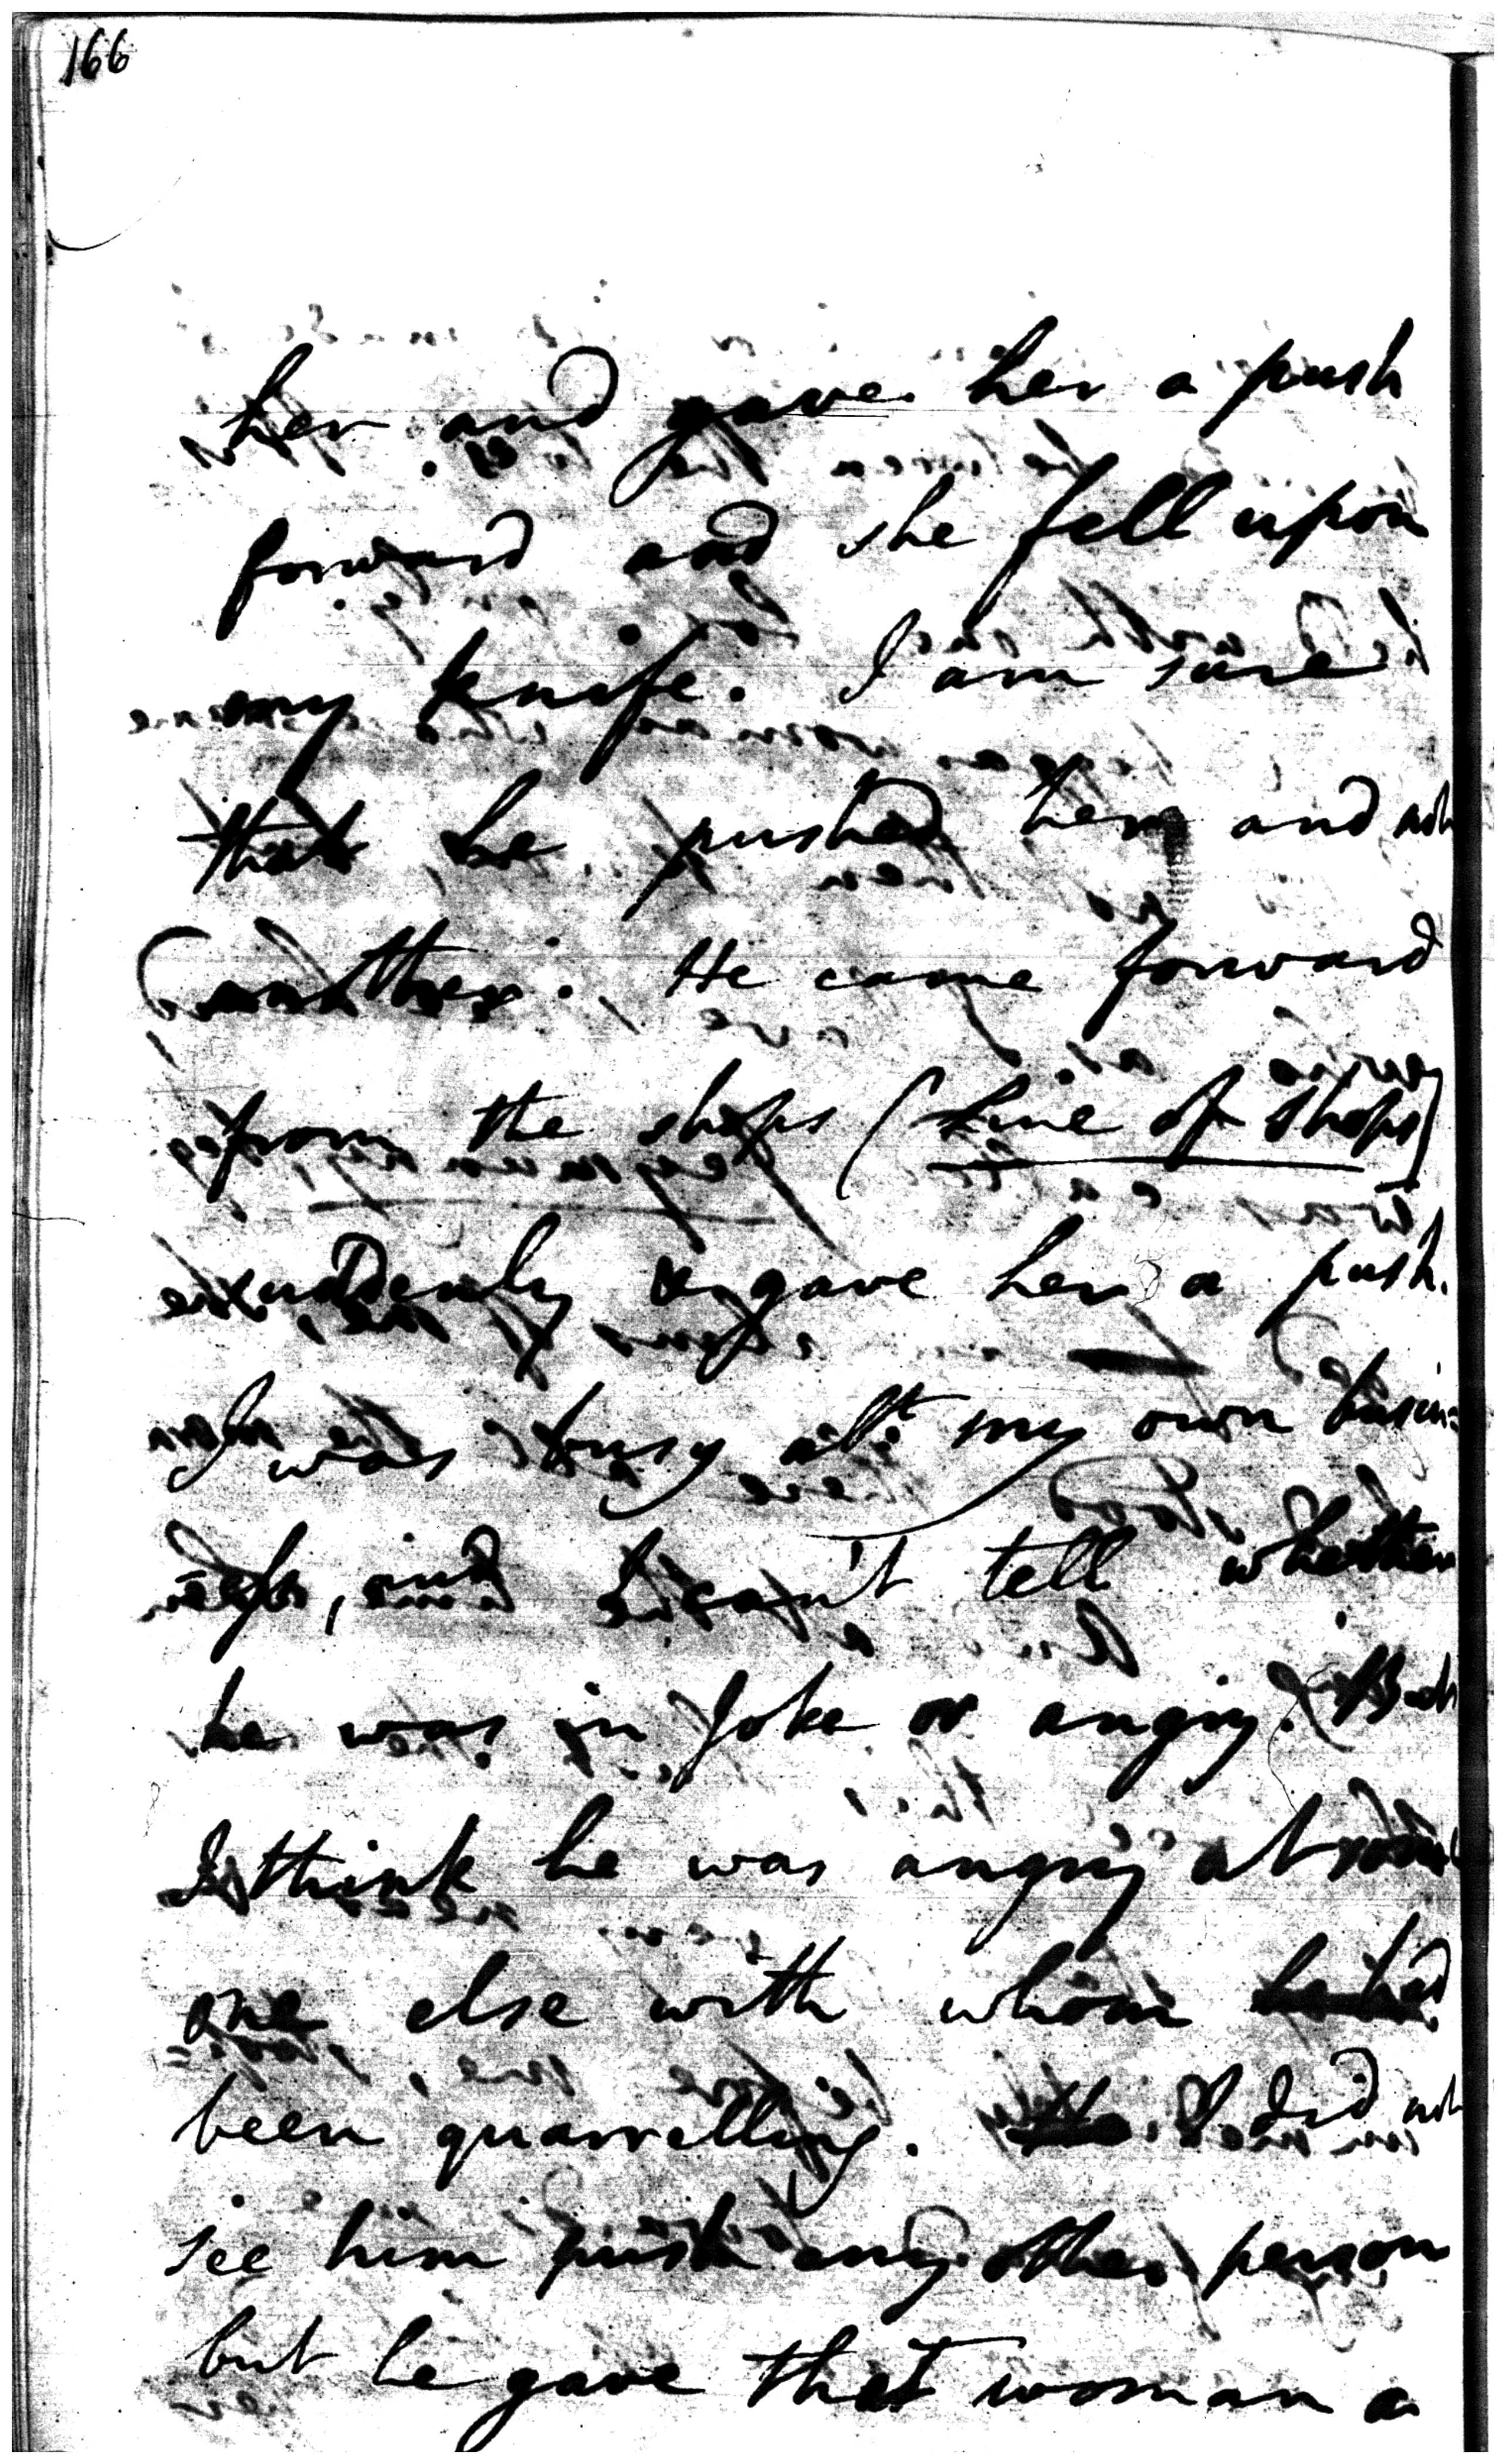 166
her and gave her a push
forward and she fell upon
my knife. I am sure
that he pushed her and not
another. He came forward
from the shops (Line of shops)
suddenly & gave her a push.
I was busy abt my own busin=
ess, and I can't tell whether
he was in Joke or angry. But
I think he was angry at some
one else with whom he had
been quarrelling. I did not
see him push any other person
but he gave that woman a